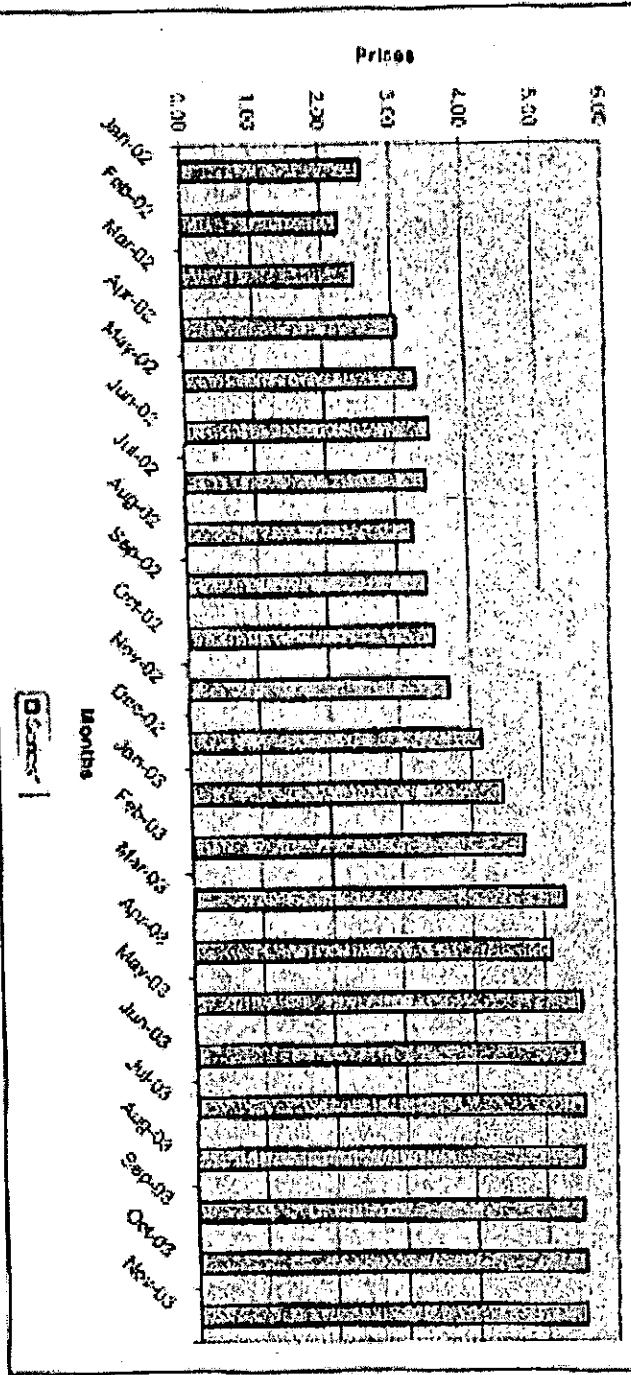 Prices
6.00
5.00
4.00
3.00
2.00
1.00
0.00
Jan-02
Feb-02
Mar-02
Apr-02
May-02
Jun-02
Jul-02
Aug-02
Sep-02
Oct-02
Nov-02
Dec-02
Jan-03
Feb-03
Mar-03
Apr-03
May-03
Jun-03
Jul-03
Aug-03
Sep-03
Oct-03
Nov-03
Months